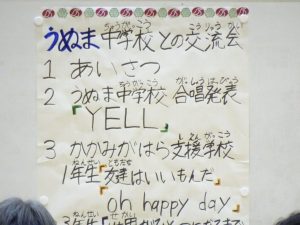 うぬま中学校との交流会
1 あいさつ
2 うぬま中学校 合唱発表
「YELL」
3 かかみがはら支援学校
1年生「友達はいいもんだ」
「oh happy day」